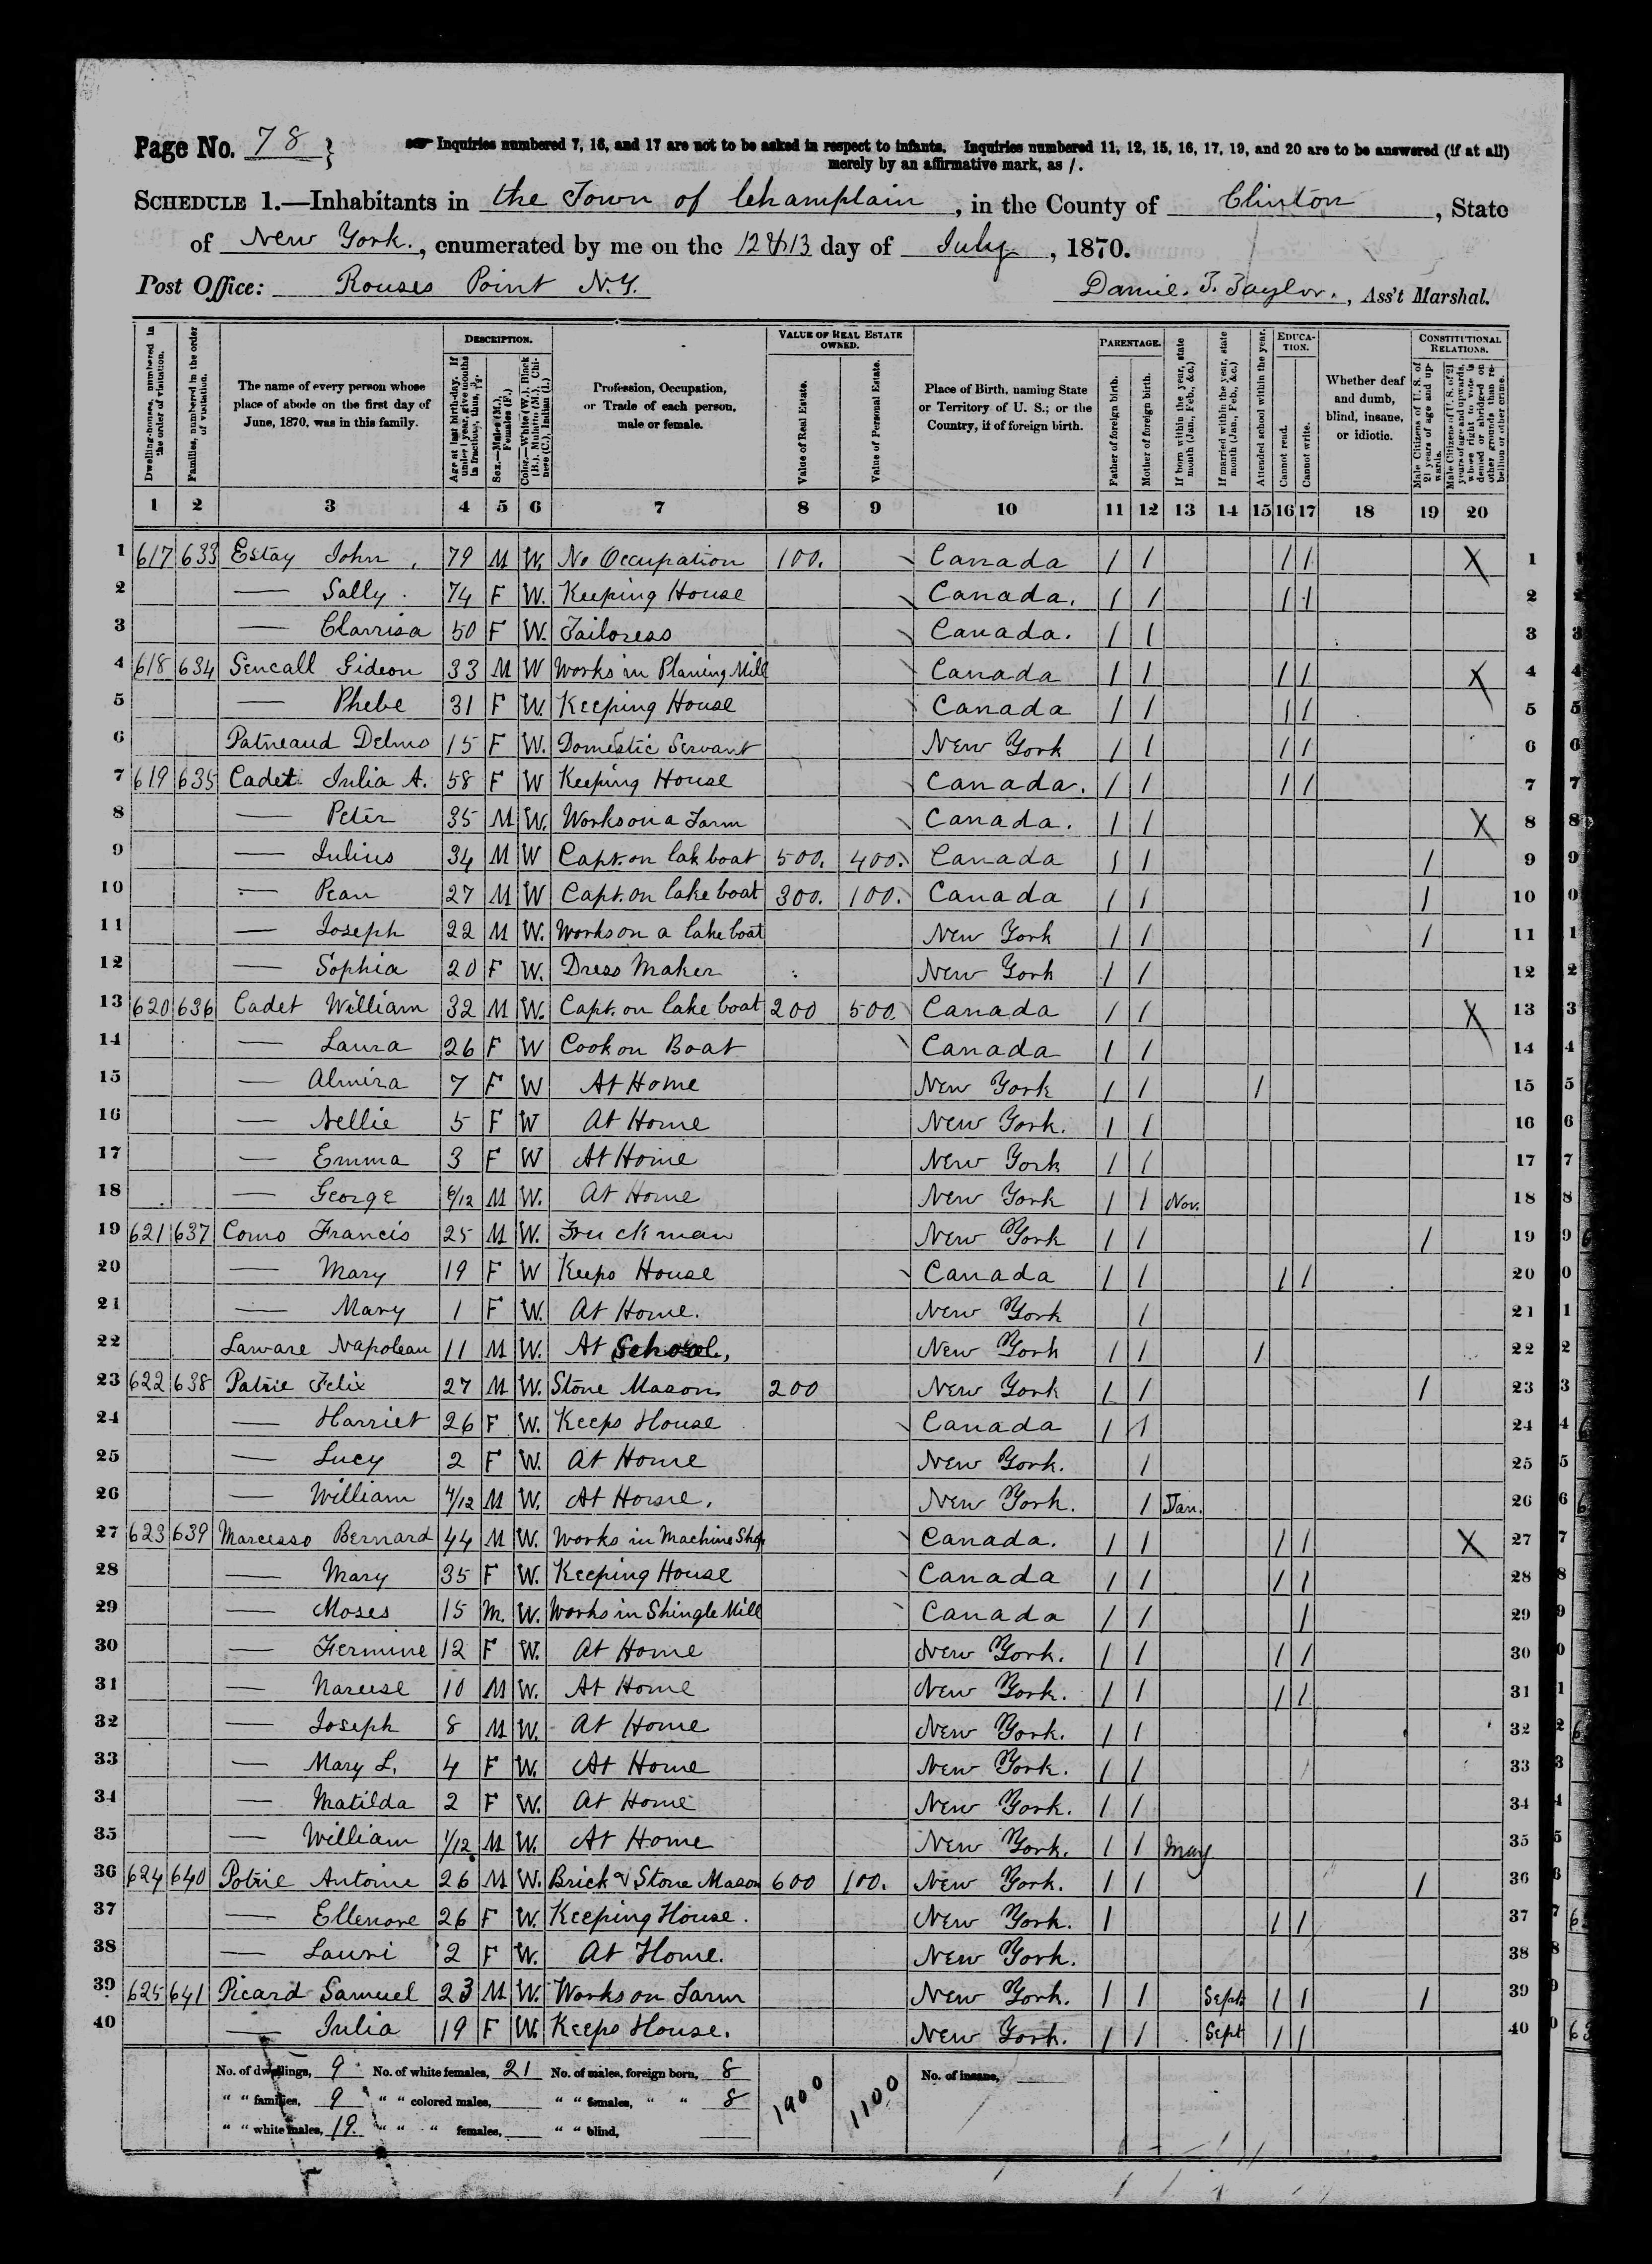 Page No. 78 } Inquiries numbered 7, 16, and 17 are not to be asked in respect to infants. Inquiries numbered 11, 12, 15, 16, 17, 19, and 20 are to be answered (if at all)
merely by an affirmative mark, as /.
SCHEDULE 1.—Inhabitants in the Town of Champlain, in the County of Clinton, State
of New York., enumerated by me on the 12 & 13 day of July, 1870.
Post Office: Rouses Point N.Y. Daniel T. Taylor., Ass't Marshal.
Dwelling-houses, numbered in the order of visitation.
Families, numbered in the order of visitation.
The name of every person whose place of abode on the first day of June, 1870, was in this family.
DESCRIPTION.
Age at last birth-day. If under 1 year, give months in fractions, thus, 3/12.
Sex.—Males (M.), Females (F.)
Color.—White (W.), Black (B.), Mulatto (M.), Chinese (C.), Indian (I.)
Profession, Occupation, or Trade of each person, male or female.
VALUE OF REAL ESTATE OWNED.
Value of Real Estate.
Value of Personal Estate.
Place of Birth, naming State or Territory of U. S.; or the Country, if of foreign birth.
PARENTAGE.
Father of foreign birth.
Mother of foreign birth.
If born within the year, state month (Jan. Feb., &c.)
If married within the year, state month (Jan. Feb., &c.)
Attended school within the year.
EDUCATION.
Cannot read.
Cannot write.
Whether deaf and dumb, blind, insane, or idiotic.
CONSTITUTIONAL RELATIONS.
Male Citizens of U. S. of 21 years of age and upwards.
Male Citizens of U. S. of 21 years of age and upwards, whose right to vote is denied or abridged on other grounds than rebellion or other crime.
1 2 3 4 5 6 7 8 9 10 11 12 13 14 15 16 17 18 19 20
1 617 633 Estay John 79 M W. No Occupation 100. Canada / / / / X 1
2 — Sally. 74 F W. Keeping House Canada. / / / / 2
3 — Clarrisa 50 F W. Tailoress Canada. / / 3
4 618 634 Sencall Gideon 33 M W Works in Planing Mill Canada / / / / X 4
5 — Phebe 31 F W. Keeping House Canada / / / / 5
6 Patneaud Delmo 15 F W. Domestic Servant New York / / / / 6
7 619 635 Cadet Julia A. 58 F W Keeping House Canada. / / / / 7
8 — Peter 35 M W. Works on a Farm Canada. / / X 8
9 — Julius 34 M W Capt. on lak boat 500. 400. Canada / / / 9
10 — Pean 27 M W Capt. on lake boat 300. 100. Canada / / / 10
11 — Joseph 22 M W. Works on a lake boat New York / / / 11
12 — Sophia 20 F W. Dress Maker New York / / 12
13 620 636 Cadet William 32 M W. Capt. on lake boat 200 500. Canada / / X 13
14 — Laura 26 F W Cook on Boat Canada / / 14
15 — Almira 7 F W At Home New York / / / 15
16 — Nellie 5 F W At Home New York. / / 16
17 — Emma 3 F W At Home New York / / 17
18 — George 6/12 M W. At Home New York / / Nov. 18
19 621 637 Como Francis 25 M W. Truckman New York / / / 19
20 — Mary 19 F W Keeps House Canada / / / / 20
21 — Mary 1 F W. At Home. New York / 21
22 Larware Napoleau 11 M W. At School, New York / / / 22
23 622 638 Patrie Felix 27 M W. Stone Mason 200 New York / / / 23
24 — Harriet 26 F W. Keeps House Canada / / 24
25 — Lucy 2 F W. At Home New York. / 25
26 — William 4/12 M W. At Home. New York. / Jan. 26
27 623 639 Marcesso Bernard 44 M W. Works in Machine Shop Canada. / / / / X 27
28 — Mary 35 F W. Keeping House Canada / / / / 28
29 — Moses 15 M. W. Works in Shingle Mill Canada / / / 29
30 — Fermine 12 F W. At Home New York. / / / / 30
31 — Narcise 10 M W. At Home New York. / / / / 31
32 — Joseph 8 M W. At Home New York. / / 32
33 — Mary L. 4 F W. At Home New York. / / 33
34 — Matilda 2 F W. At Home New York. / / 34
35 — William 1/12 M W. At Home New York. / / May 35
36 624 640 Potrie Antoine 26 M W. Brick & Stone Mason 600 100. New York. / / / 36
37 — Ellenore 26 F W. Keeping House. New York. / / / 37
38 — Lauri 2 F W. At Home. New York. 38
39 625 641 Picard Samuel 23 M W. Works on Farm New York. / / Sept. / / / 39
40 — Julia 19 F W. Keeps House. New York. / / Sept / / 40
No. of dwellings, 9 No. of white females, 21 No. of males, foreign born, 8 1900 1100 No. of insane,
" " families, 9 " " colored males, " " females, " " 8
" " white males, 19. " " " females, " " blind,